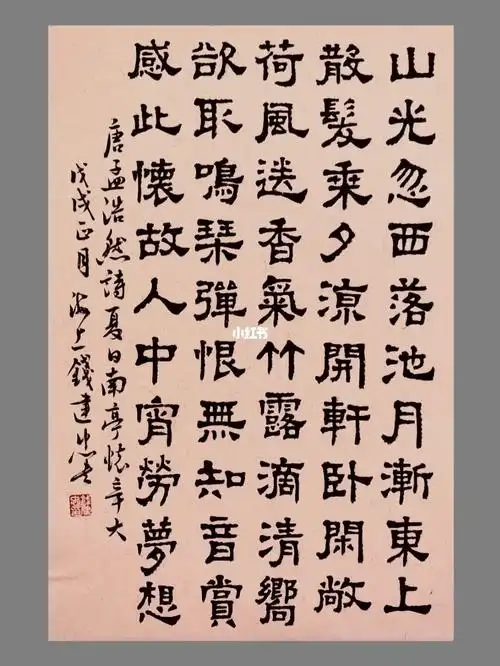 山光忽西落池月漸東上
散髮乘夕涼開軒卧閑敞
荷風送香氣竹露滴清響
欲取鳴琴彈恨無知音賞
感此懷故人中宵勞夢想
唐孟浩然詩夏日南亭懷辛大
戊戌正月海上錢建忠書
小红书